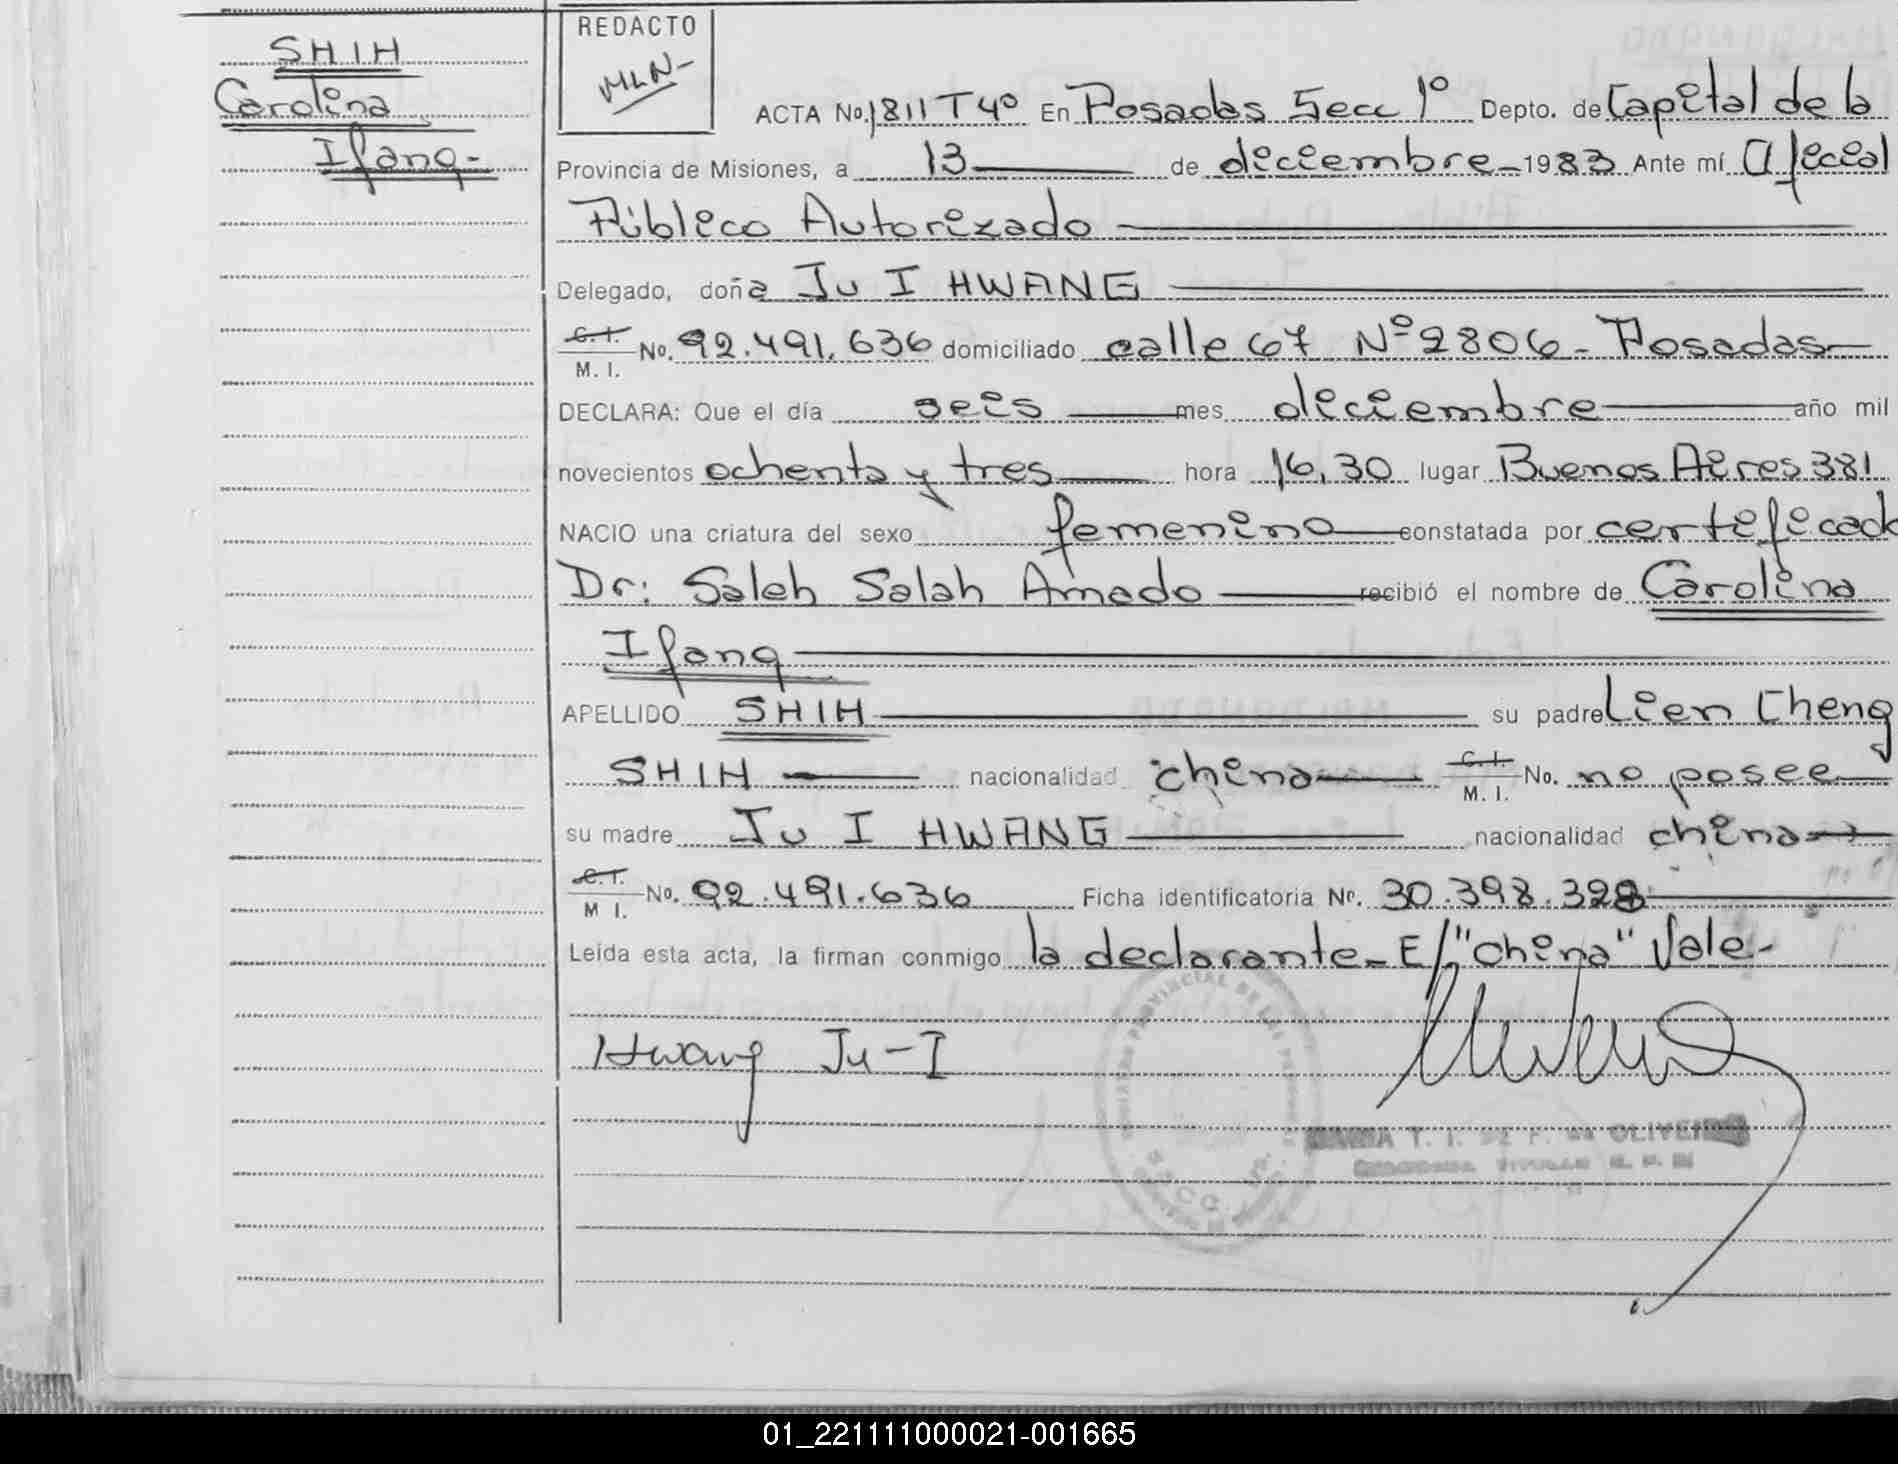 SHIH
Carolina
Ifang-
REDACTO
MLN-
ACTA No. 1811 T 4º En Posadas Secc 1º Depto. de Capital de la
Provincia de Misiones, a 13 de diciembre 1983 Ante mí Oficial
Público Autorizado
Delegado, doña Ju I HWANG
C. I. M. I. No. 92.491.636 domiciliado calle 67 Nº 2806 - Posadas
DECLARA: Que el día seis mes diciembre año mil
novecientos ochenta y tres hora 16,30 lugar Buenos Aires 381
NACIO una criatura del sexo femenino constatada por certificado
Dr: Saleh Salah Amado recibió el nombre de Carolina
Ifang
APELLIDO SHIH su padre Lien Cheng
SHIH nacionalidad china C. I. M. I. No. no posee
su madre Ju I HWANG nacionalidad china
C. I. M I. No. 92.491.636 Ficha identificatoria Nº. 30.398.328
Leída esta acta, la firman conmigo la declarante - E/"china" Vale-
Hwang Ju-I
T. I. DE F. DE OLIVEIRA
01_221111000021-001665